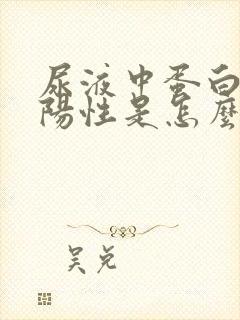 尿液中蛋白
陽性是怎麼
吴兌